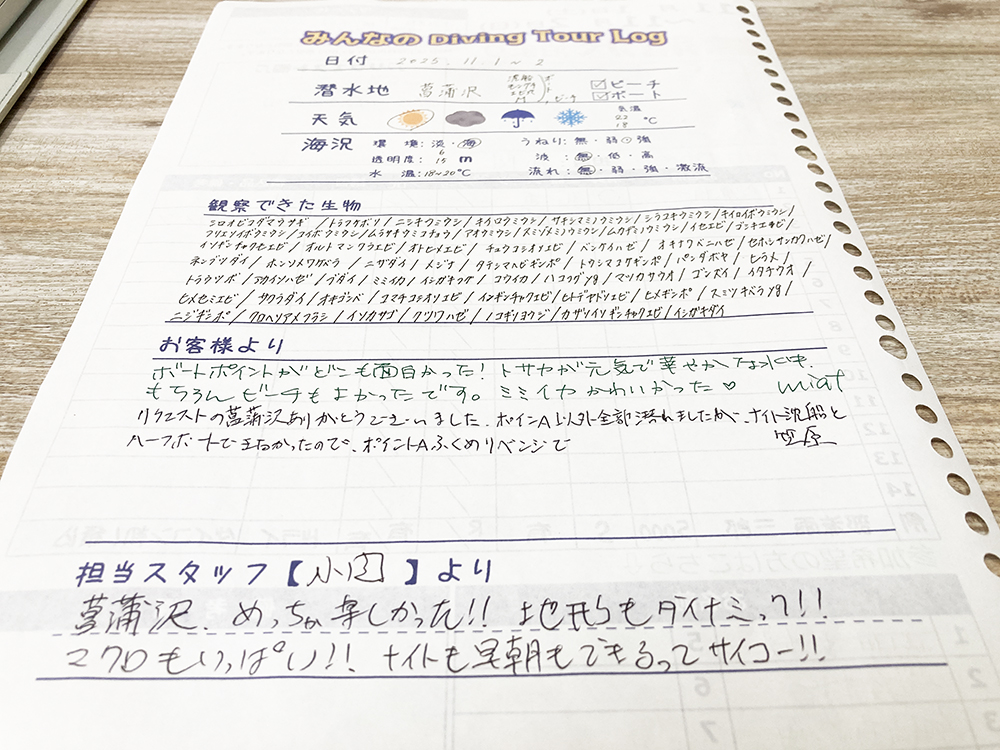 みんなの Diving Tour Log
日付 2025. 11. 1 ~ 2
潜水地 菖蒲沢 沈船 ボート ビーチ
☑ビーチ
☑ボート
天気 気温 22 18 ℃
海況 環境:淡・海 うねり:無・弱・強
透明度: 6 15 m 波:無・低・高
水温:18~20℃ 流れ:無・弱・強・激流
観察できた生物
シロオビコダマウサギ / トラフケボリ / ニシキウミウシ / キイロウミウシ / サキシマミノウミウシ / シラユキウミウシ / キイロイボウミウシ /
フリエリイボウミウシ / コイボウミウシ / ムラサキウミコチョウ / アオウミウシ / スミゾメミノウミウシ / ムカデミノウミウシ / イセエビ /
イソギンチャクモエビ / オルトマンワラエビ / オトヒメエビ / チュウコシオリエビ / ベンケイハゼ / オキナワベニハゼ / セホシサンカクハゼ /
ネンブツダイ / ホンソメワケベラ / ニザダイ / メジナ / タテシマヘビギンポ / トウシマコケギンポ / パンダボヤ / ヒラメ /
トラウツボ / アカイソハゼ / ブダイ / ミミイカ / イシガキフグ / コウイカ / ハコフグyg / マツカサウオ / ゴンズイ / イタチウオ /
ヒメセミエビ / サクラダイ / オキゴンベ / コマチコシオリエビ / イソギンチャクエビ / ヒトデヤドリエビ / ヒメギンポ / スミツキベラyg /
ニジギンポ / クロヘリアメフラシ / イソカサゴ / クツワハゼ / ノコギリヨウジ / カザリイソギンチャクエビ / イシガキダイ
お客様より
ボートポイントがどこも面白かった! トサヤギが元気で華やかな水中。
もちろんビーチもよかったです。ミミイカかわいかった♡ miat
リクエストの菖蒲沢ありがとうございました。ポイントA以外全部潜れましたが、ナイト沈船と
ハーフボートで まわかったので、ポイントAふくめリベンジで 笠原
担当スタッフ【小図】より
菖蒲沢、めっちゃ楽しかった!! 地形もダイナミック!!
マクロもいっぱい!! ナイトも早朝もできるってサイコー!!